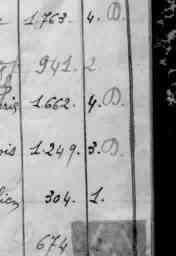 1.763. 4. D.
941. 2
ris 1.662. 4. D.
is 1.249. 3. D.
304. 1.
674